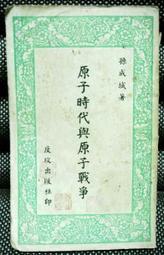 孫成城著
原子時代與原子戰爭
反攻出版社印